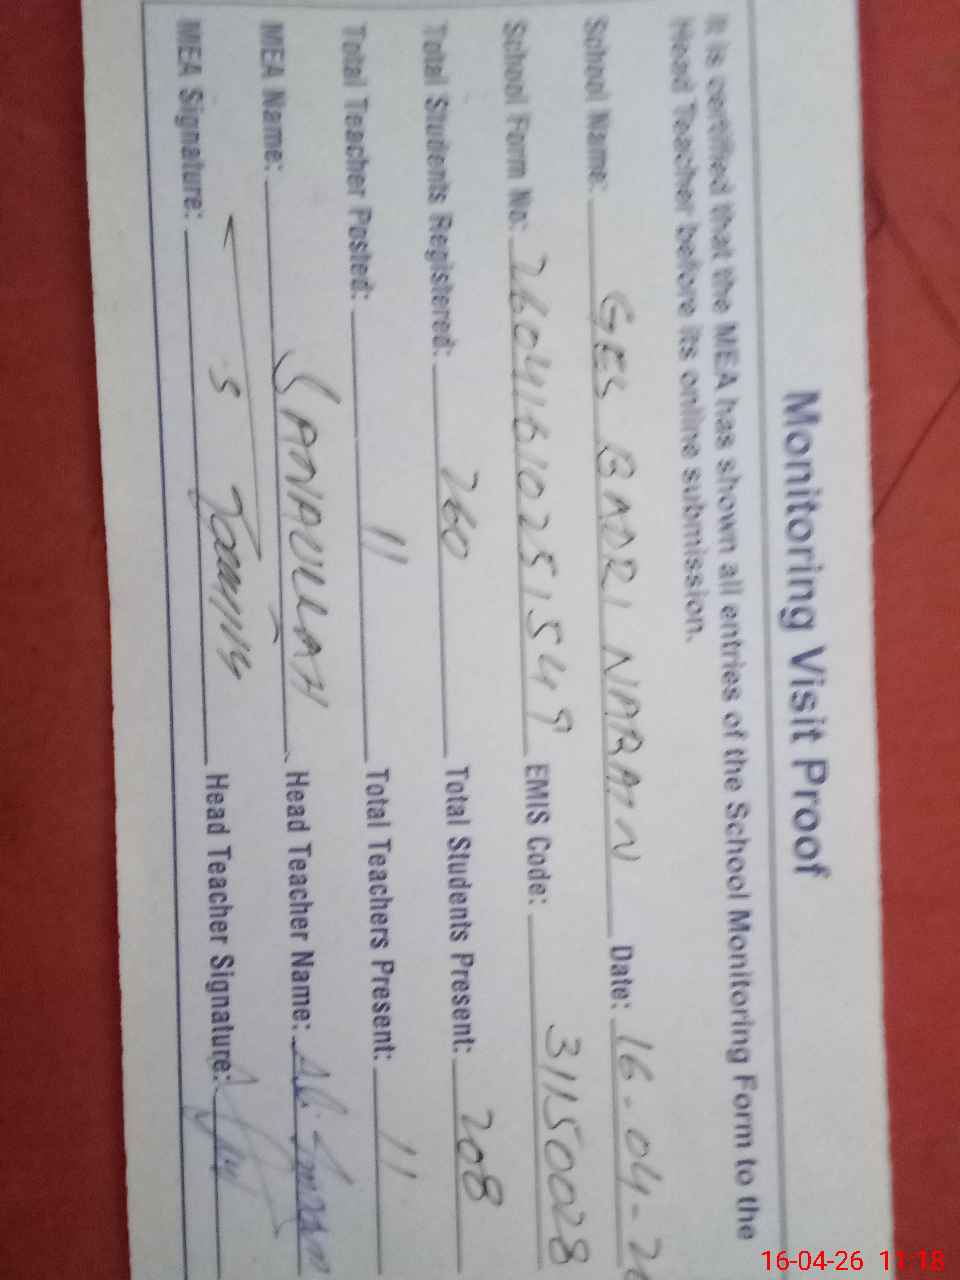 Monitoring Visit Proof
It is certified that the MEA has shown all entries of the School Monitoring Form to the
Head Teacher before its online submission.
School Name: GES BADRI NARAIN Date: 16-04-2
School Form No: 26041610251549 EMIS Code: 31150028
Total Students Registered: 260 Total Students Present: 208
Total Teacher Posted: 11 Total Teachers Present: 11
MEA Name: SANAULLAH Head Teacher Name: Ali
MEA Signature: Head Teacher Signature:
16-04-26 11:18